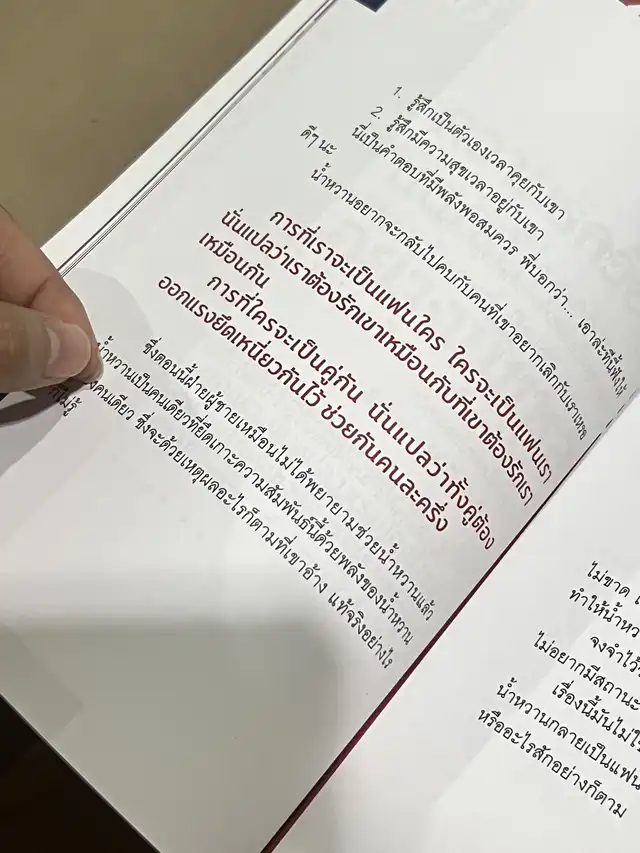 1. รู้สึกเป็นตัวเองเวลาคุยกับเขา
2. รู้สึกมีความสุขเวลาอยู่กับเขา
นี่เป็นคำตอบที่มีพลังพอสมควร พี่บอกว่า... เอาล่ะทีนี้ฟังให้
ดีๆ นะ
น้ำหวานอยากจะกลับไปคบกับคนที่เขาอยากเลิกกับเราเหรอ
การที่เราจะเป็นแฟนใคร ใครจะเป็นแฟนเรา
นั่นแปลว่าเราต้องรักเขาเหมือนกับที่เขาต้องรักเรา
เหมือนกัน
การที่ใครจะเป็นคู่กัน นั่นแปลว่าทั้งคู่ต้อง
ออกแรงยึดเหนี่ยวกันไว้ ช่วยกันคนละครึ่ง
ซึ่งตอนนี้ฝ่ายผู้ชายเหมือนไม่ได้พยายามช่วยน้ำหวานแล้ว
น้ำหวานเป็นคนเดียวที่ยึดเกาะความสัมพันธ์นี้ด้วยพลังของน้ำหวาน
คนเดียว ซึ่งจะด้วยเหตุผลอะไรก็ตามที่เขาอ้าง แท้จริงอย่างไร
ก็ไม่รู้
ไม่ขาด
ทำให้น้ำหวา
จงจำไว้
ไม่อยากมีสถานะ
เรื่องนี้มันไม่ใ
น้ำหวานกลายเป็นแฟน
หรืออะไรสักอย่างก็ตาม